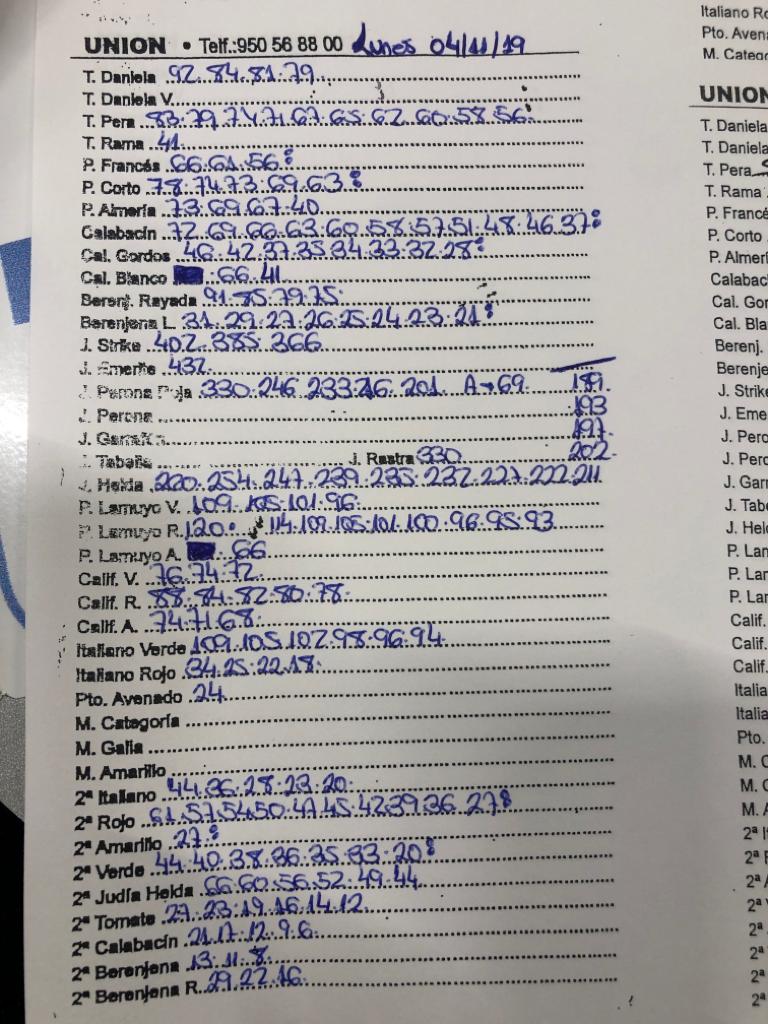 UNION • Telf.:950 56 88 00 Lunes 04/11/19
T. Daniela 92.84.81.79
T. Daniela V.
T. Pera 83.79.74.71.67.65.62.60.58.56.
T. Rama 41
P. Francés 66.61.56.
P. Corto 78.74.73.69.63.
P. Almería 73.69.67.40
Calabacín 72.69.66.63.60.58.57.51.48.46.37
Cal. Gordos 46.42.37.35.34.33.32.28
Cal. Blanco 66.41
Berenj. Rayada 91.85.79.75
Berenjena L. 31.29.27.26.25.24.23.21
J. Strike 402.385.366
J. Emerite 432
J. Perona Roja 330.246.233. 201. A→69. 189.
J. Perona 193
J. Garrafal 197
J. Tabella J. Rastra 330 202
J. Helda 254.247.239.235.232.227.222.211
P. Lamuyo V. 109.105.101.96
P. Lamuyo R. 120. 114.109.105.101.100.96.95.93
P. Lamuyo A. 66
Calif. V. 76.74.72
Calif. R. 88.84.82.80.78
Calif. A. 74.71.68
Italiano Verde 109.105.102.98.96.94
Italiano Rojo 34.25.22.18
Pto. Avenado 24
M. Categoría
M. Galia
M. Amarillo
2ª Italiano 44.36.28.23.20
2ª Rojo 61.57.54.50.47.45.42.39.36.27
2ª Amarillo 27
2ª Verde 44.40.38.36.35.33.20
2ª Judía Helda 66.60.56.52.49.44
2ª Tomate 27.23.19.16.14.12
2ª Calabacín 21.17.12.9.6
2ª Berenjena 13.11.8
2ª Berenjena R. 29.22.16
Italiano Ro
Pto. Avena
M. Catego
UNION
T. Daniela
T. Daniela
T. Pera
T. Rama
P. Francé
P. Corto
P. Almerí
Calabac
Cal. Gor
Cal. Bla
Berenj.
Berenje
J. Strike
J. Eme
J. Perc
J. Perc
J. Garr
J. Tabe
J. Held
P. Lan
P. Lar
P. Lar
Calif.
Calif.
Calif.
Italia
Italia
Pto.
M. C
M. C
M. A
2ª I
2ª F
2ª A
2ª V
2ª
2ª
2ª
2ª
2ª